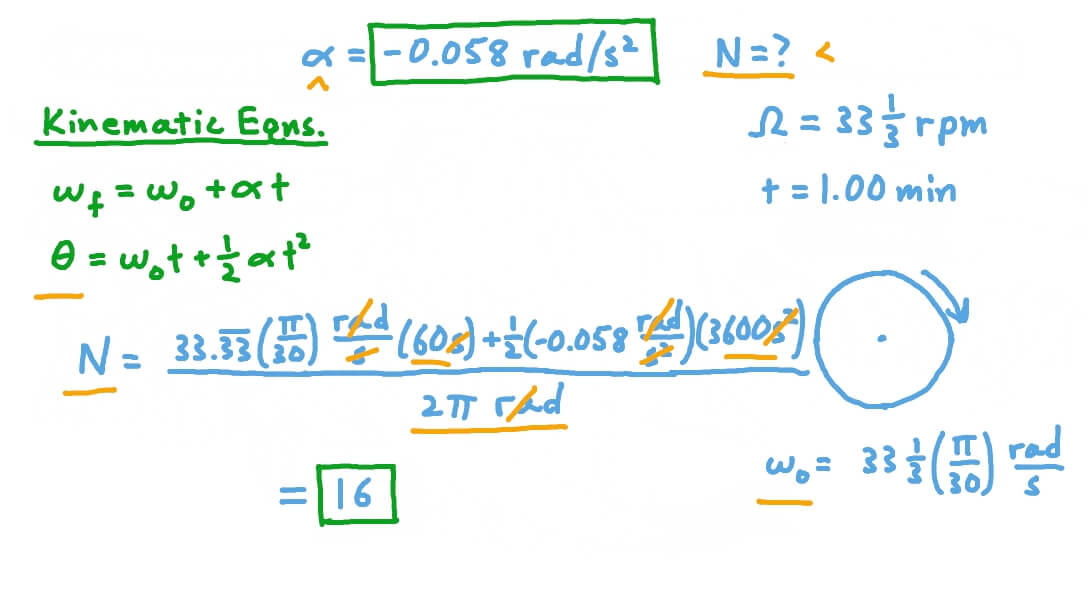 α = -0.058 rad/s² N=? <
Kinematic Eqns.
Ω = 33 1/3 rpm
ω_f = ω_0 + αt
t = 1.00 min
θ = ω_0t + 1/2 αt²
N = (33.3̅3̅(π/30) rad/s (60s) + 1/2(-0.058 rad/s²)(3600s²)) / (2π rad)
ω_0 = 33 1/3 (π/30) rad/s
= 16